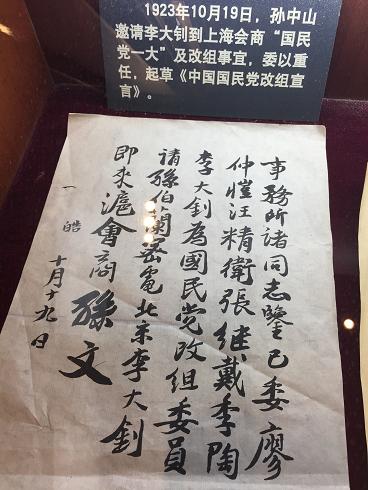 1923年10月19日，孙中山
邀请李大钊到上海会商“国民
党一大”及改组事宜，委以重
任，起草《中国国民党改组宣
言》。
事務所諸同志鑒已委廖
仲愷汪精衛張繼戴季陶
李大釗為國民党改組委員
請孫伯蘭密電北京李大釗
即來滬會商孫文
一皓 十月十九日